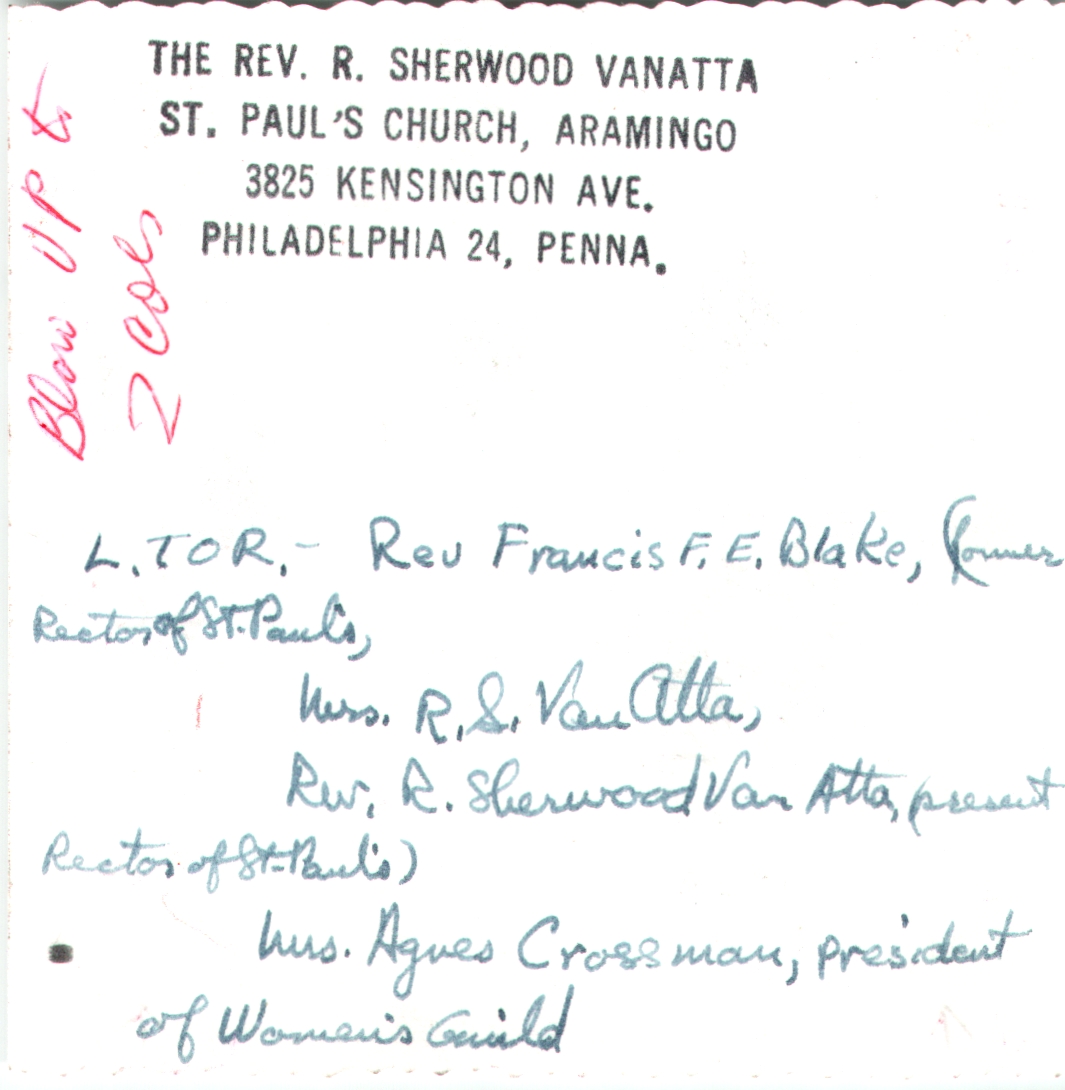 THE REV. R. SHERWOOD VANATTA
ST. PAUL'S CHURCH, ARAMINGO
3825 KENSINGTON AVE.
PHILADELPHIA 24, PENNA.
Blow UP to
2 cols
L. TO R. - Rev Francis F. E. Blake, (former
Rector of St. Paul's,
Mrs. R. S. Van Atta,
Rev. R. Sherwood Van Atta, present
Rector of St. Paul's)
Mrs. Agnes Crossman, president
of Women's Guild